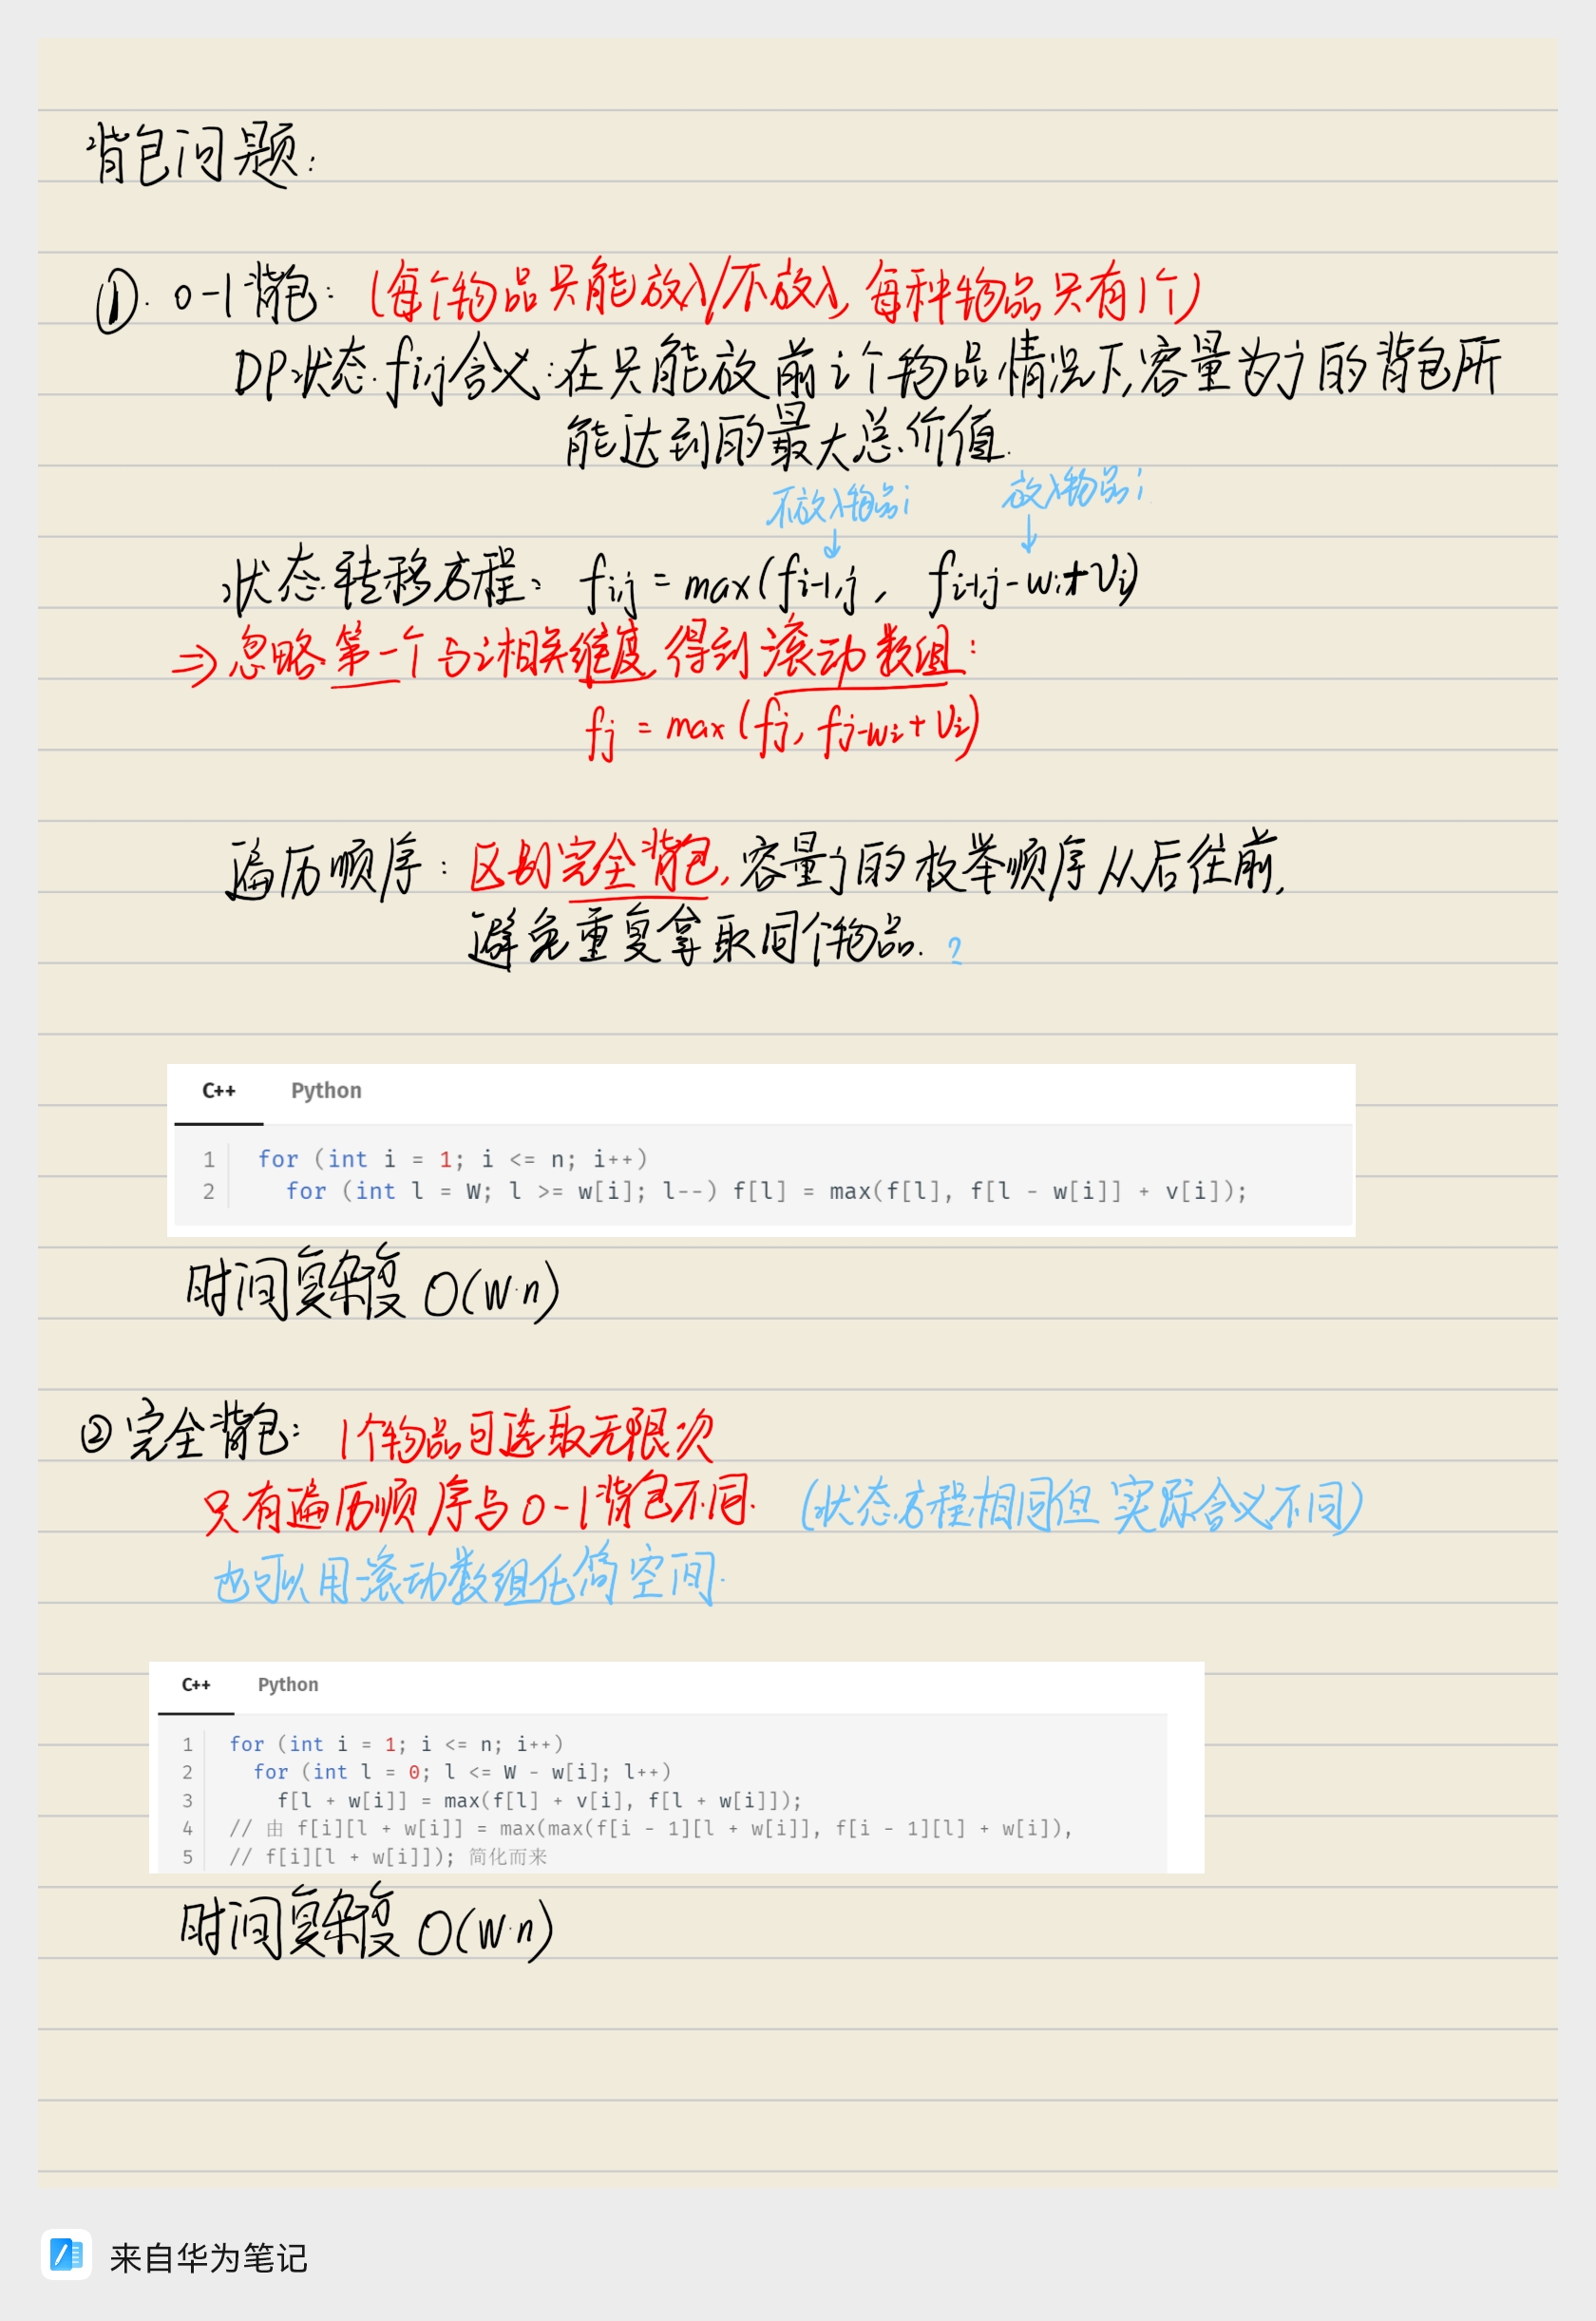 背包问题:
①. 0-1背包: (每个物品只能放入/不放入, 每种物品只有1个)
DP状态 fi,j含义: 在只能放前i个物品情况下,容量为j的背包所
能达到的最大总价值.
不放入物品i 放入物品i
状态转移方程: fi,j = max(fi-1,j , fi-1,j-wi+vi)
⇒忽略第一个与i相关维度,得到滚动数组:
fj = max(fj, fj-wi+vi)
遍历顺序: 区别完全背包, 容量j的枚举顺序从后往前,
避免重复拿取同个物品. ?
C++ Python
1 for (int i = 1; i <= n; i++)
2 for (int l = W; l >= w[i]; l--) f[l] = max(f[l], f[l - w[i]] + v[i]);
时间复杂度 O(W·n)
②完全背包: 1个物品可选取无限次
只有遍历顺序与0-1背包不同. (状态方程相同但实际含义不同)
也可以用滚动数组化简空间.
C++ Python
1 for (int i = 1; i <= n; i++)
2 for (int l = 0; l <= W - w[i]; l++)
3 f[l + w[i]] = max(f[l] + v[i], f[l + w[i]]);
4 // 由 f[i][l + w[i]] = max(max(f[i - 1][l + w[i]], f[i - 1][l] + w[i]),
5 // f[i][l + w[i]]); 简化而来
时间复杂度 O(W·n)
来自华为笔记